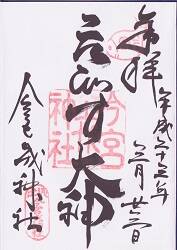 奉拝
平成二十三年
三月廿三日
えびす大神
今宮戎神社
今宮戎神社